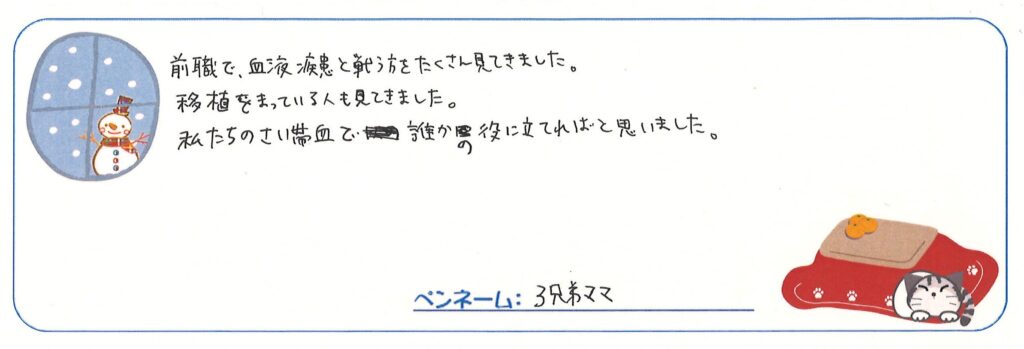 前職で、血液疾患と戦う方をたくさん見てきました。
移植をまっている人も見てきました。
私たちのさい帯血で誰かの役に立てればと思いました。
ペンネーム: 3兄弟ママ